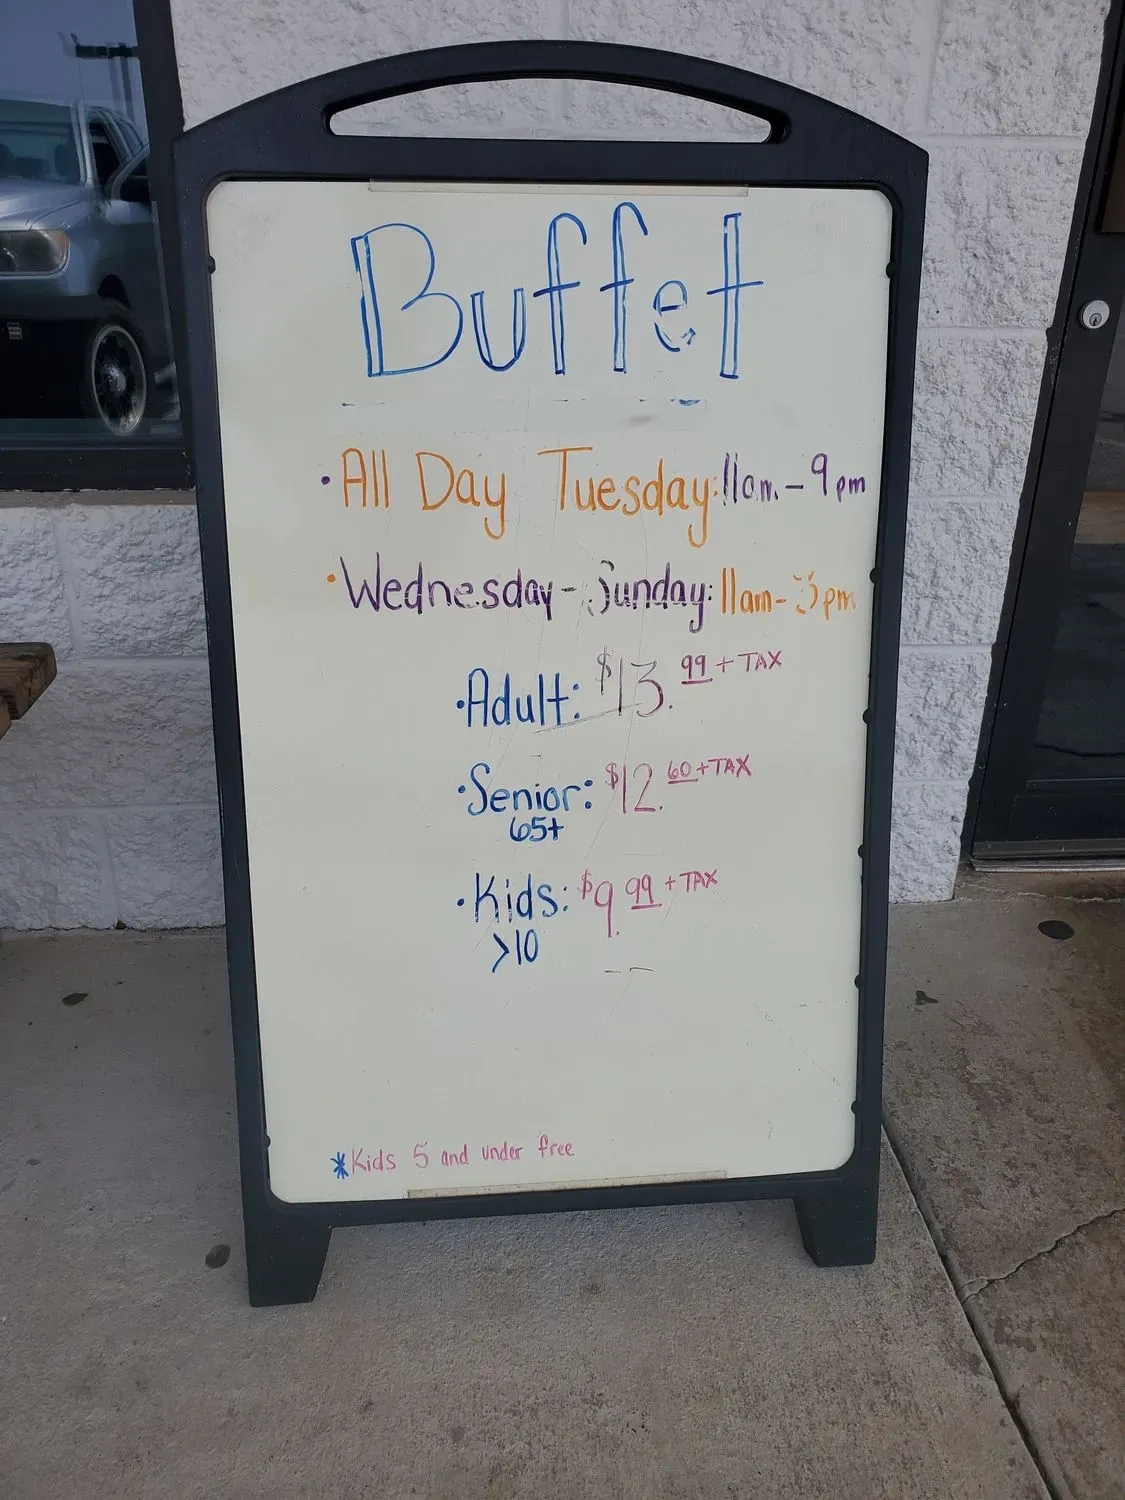 Buffet
• All Day Tuesday: 11am - 9pm
• Wednesday - Sunday: 11am - 3pm
• Adult: $13.99 + TAX
• Senior: $12.60 + TAX
65+
• Kids: $9.99 + TAX
>10
*Kids 5 and under free